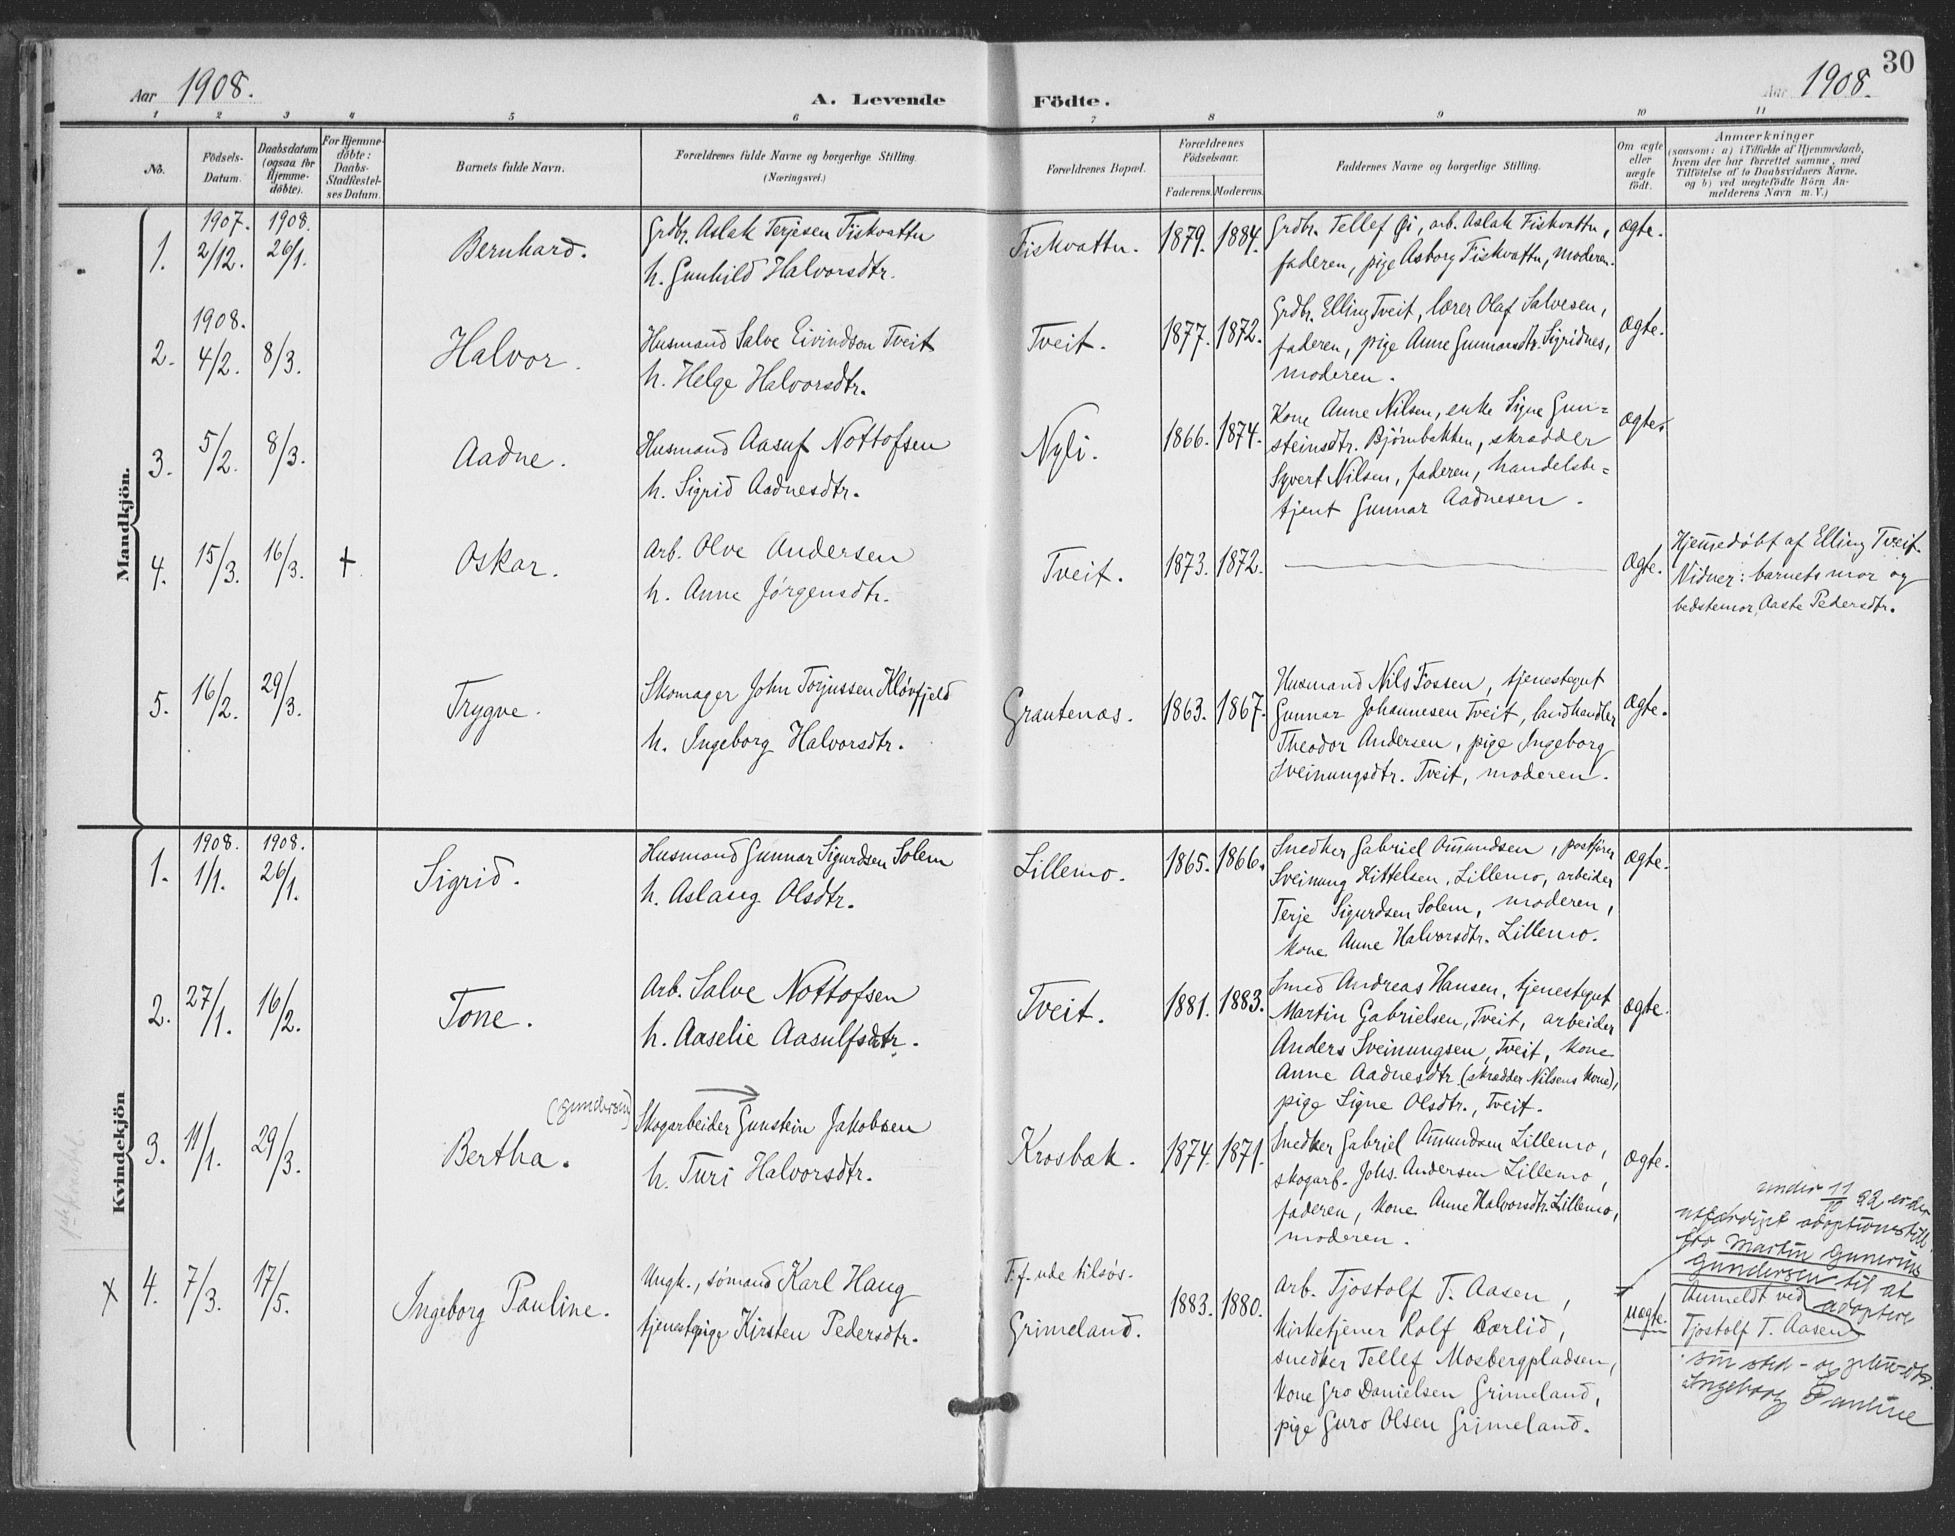 30
Aar 1908.
A. Levende Födte.
Aar 1908.
1 2 3 4 5 6 7 8 9 10 11
No.
Födsels-
Datum.
Daabsdatum
(ogsaa för
Hjemme-
döbte).
For Hjemme-
döbte:
Daabs-
Stadfæstel-
ses Datum.
Barnets fulde Navn.
Forældrenes fulde Navne og borgerlige Stilling.
(Næringsvei.)
Forældrenes Bopæl.
Forældrenes
Födselsaar.
Faderens. Moderens.
Faddernes Navne og borgerlige Stilling.
Om ægte
eller
uægte
födt.
Anmærkninger
(saasom: a) i Tilfælde af Hjemmedaab,
hvem der har forrettet samme, med
Tilföielse af to Daabsvidners Navne.
og b) ved uægtefödte Börn An-
melderens Navn m. V.)
Mandkjön.
1.
1907.
2/12.
1908.
26/1.
Bernhard.
Grdbr. Aslak Terjesen Fiskvattn
h. Gunhild Halvorsdtr.
Fiskvattn.
1879. 1884.
Grdbr. Tellef Øi, arb. Aslak Fiskvattn,
faderen, pige Asborg Fiskvattn, moderen.
Ægte.
2.
1908.
4/2.
8/3.
Halvor.
Husmand Salve Eivindson Tveit
h. Helge Halvorsdtr.
Tveit.
1877. 1872.
Grdbr. Elling Tveit, lærer Olaf Salvesen,
faderen, pige Anne Gunnarsdtr. Sigridnes,
moderen.
Ægte.
3.
5/2.
8/3.
Aadne.
Husmand Aasuf Nottofsen
h. Sigrid Aadnesdtr.
Nyli.
1866. 1874.
Kone Anne Nilsen, enke Signe Gun=
steinsdtr. Bjørnbakken, skrædder
Syvert Nilsen, faderen, handelsbe=
tjent Gunnar Aadnesen.
Ægte.
4.
15/3.
16/3.
+
Oskar.
Arb. Olve Andersen
h. Anne Jørgensdtr.
Tveit.
1873. 1872.
Ægte.
Hjemmedøbt af Elling Tveit.
Vidner: barnets mor og
bedstemor Aaste Pedersdtr.
5.
16/2.
29/3.
Trygve.
Skomager John Torjussen Kløvfjeld
h. Ingeborg Halvorsdtr.
Grautenas.
1863. 1867.
Husmand Nils Fossen, tjenestegut
Gunnar Johannesen Tveit, landhandler
Theodor Andersen, pige Ingeborg
Sveinungsdtr. Tveit, moderen.
Ægte.
Kvindekjön
1.
1908.
1/1.
1908.
26/1.
Sigrid.
Husmand Gunnar Sigurdsen Solem
h. Aslaug Olsdtr.
Lillemo.
1865. 1866.
Snedker Gabriel Amundsen, postfører
Sveinung Kittelsen, Lillemo, arbeider
Terje Sigurdsen Solem, moderen,
kone Anne Halvorsdtr. Lillemo.
Ægte.
2.
27/1.
16/2.
Tone.
Arb. Salve Nottofsen
h. Aaselie Aasulfsdtr.
Tveit.
1881. 1883.
Smed Andreas Hansen, tjenestegut
Martin Gabrielsen, Tveit, arbeider
Anders Sveinungsen, Tveit, kone
Anne Aadnesdtr (skrædder Nilsens kone),
pige Signe Olsdtr., Tveit.
Ægte.
3.
11/1.
29/3.
(Gundersen)
Bertha.
Skogarbeider Gunstein Jakobsen
h. Turi Halvorsdtr.
Krosbak.
1874. 1871.
Snedker Gabriel Amundsen Lillemo,
skogarb. Johs. Andersen Lillemo,
faderen, kone Anne Halvorsdtr. Lillemo,
moderen.
Ægte.
x 4.
7/3.
17/5.
Ingeborg Pauline.
Ungk., sømand Karl Haug
tjenestepige Kirsten Pedersdtr.
F. f. ude tilsøs.
Grimeland.
1883. 1880.
Arb. Tjostolf T. Aasen,
kirketjener Rolf Bærlid,
snedker Tellef Mosbergpladsen,
kone Gro Danielsen Grimeland,
pige Guro Olsen Grimeland.
uægte.
under 11/10 22 er der
utfærdiget adoptionsbill.
fra Martin Gunerius
Gundersen til at
adoptere
Anmeldt ved
Tjostolf T. Aasen
sin sted- og pleie-dtr.
Ingeborg Pauline